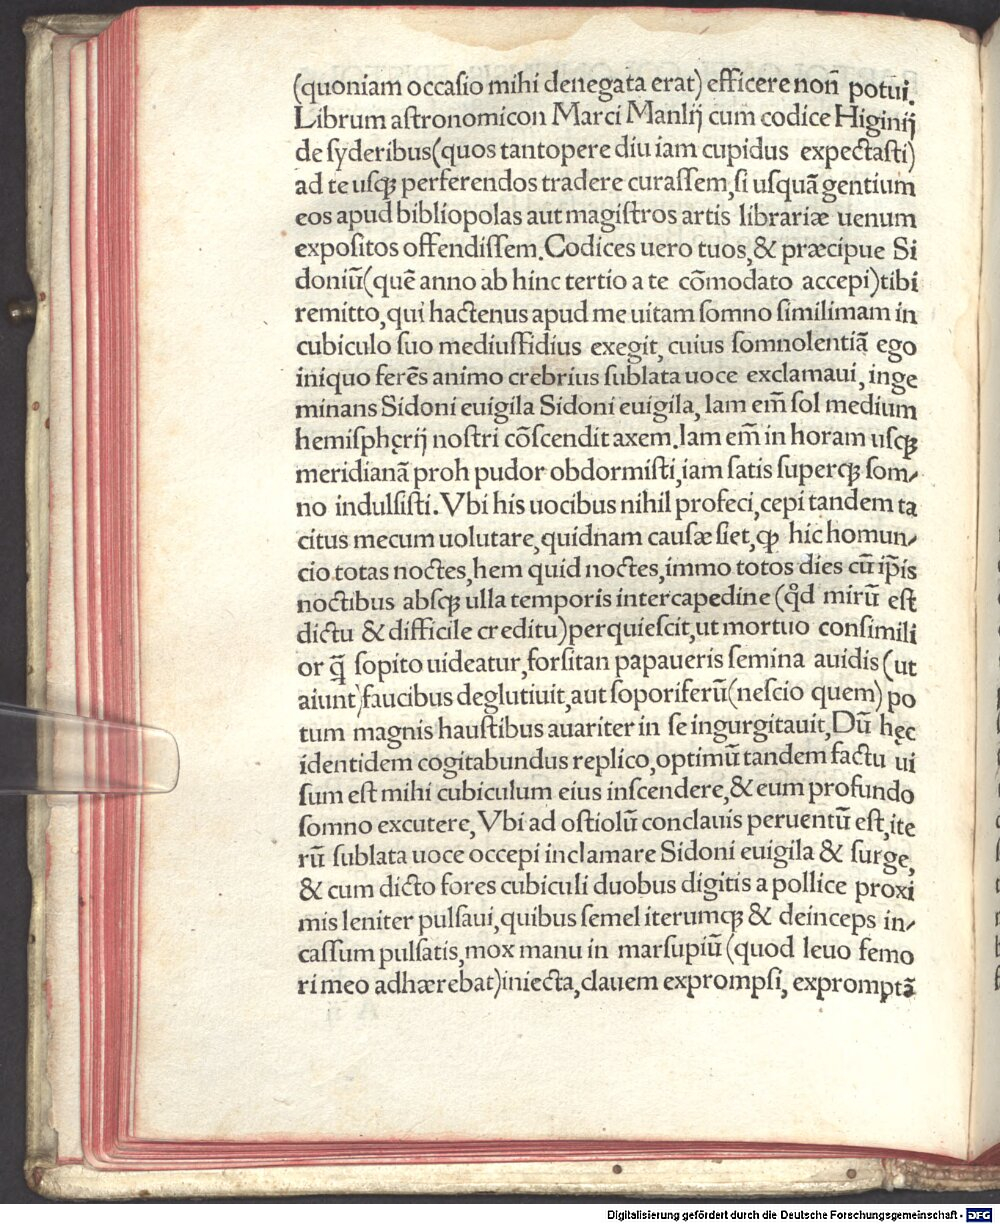 (quoniam occaſio mihi denegata erat) efficere non̄ potui.
Librum aſtronomicon Marci Manlij cum codice Higinij
de ſyderibus(quos tantopere diu iam cupidus expectaſti)
ad te uſqꝫ perferendos tradere curaſſem,ſi uſquā gentium
eos apud bibliopolas aut magiſtros artis librariæ uenum
expoſitos offendiſſem.Codices uero tuos,& præcipue Si
doniū(quē anno ab hinc tertio a te cōmodato accepi)tibi
remitto,qui hactenus apud me uitam ſomno ſimilimam in
cubiculo ſuo mediuſfidius exegit, cuius ſomnolentiā ego
iniquo ferēs animo crebrius ſublata uoce exclamaui, inge
minans Sidoni euigila Sidoni euigila, Iam em̄ ſol medium
hemiſphęrij noſtri cōſcendit axem.Iam em̄ in horam uſqꝫ
meridianā proh pudor obdormiſti,iam ſatis ſuperqꝫ ſom⸗
no indulſiſti. Vbi his uocibus nihil profeci,cepi tandem ta
citus mecum uolutare,quidnam cauſæ ſiet,ꝙ hic homun⸗
cio totas noctes,hem quid noctes,immo totos dies cū ip̄is
noctibus abſqꝫ ulla temporis intercapedine (qd̊ mirū eſt
dictu & difficile creditu)perquieſcit,ut mortuo conſimili
or q̄ ſopito uideatur,forſitan papaueris ſemina auidis(ut
aiunt)faucibus deglutiuit,aut ſoporiferū(neſcio quem) po
tum magnis hauſtibus auariter in ſe ingurgitauit,Dū hęc
identidem cogitabundus replico,optimū tandem factu ui
ſum eſt mihi cubiculum eius inſcendere,& eum profundo
ſomno excutere, Vbi ad oſtiolū conclauis peruentū eſt,ite
rū ſublata uoce occepi inclamare Sidoni euigila & ſurge,
& cum dicto fores cubiculi duobus digitis a pollice proxi
mis leniter pulſaui,quibus ſemel iterumqꝫ & deinceps in⸗
caſſum pulſatis,mox manu in marſupiū (quod leuo femo
ri meo adhærebat)iniecta,clauem exprompſi, expromptā
Digitalisierung gefördert durch die Deutsche Forschungsgemeinschaft - DFG